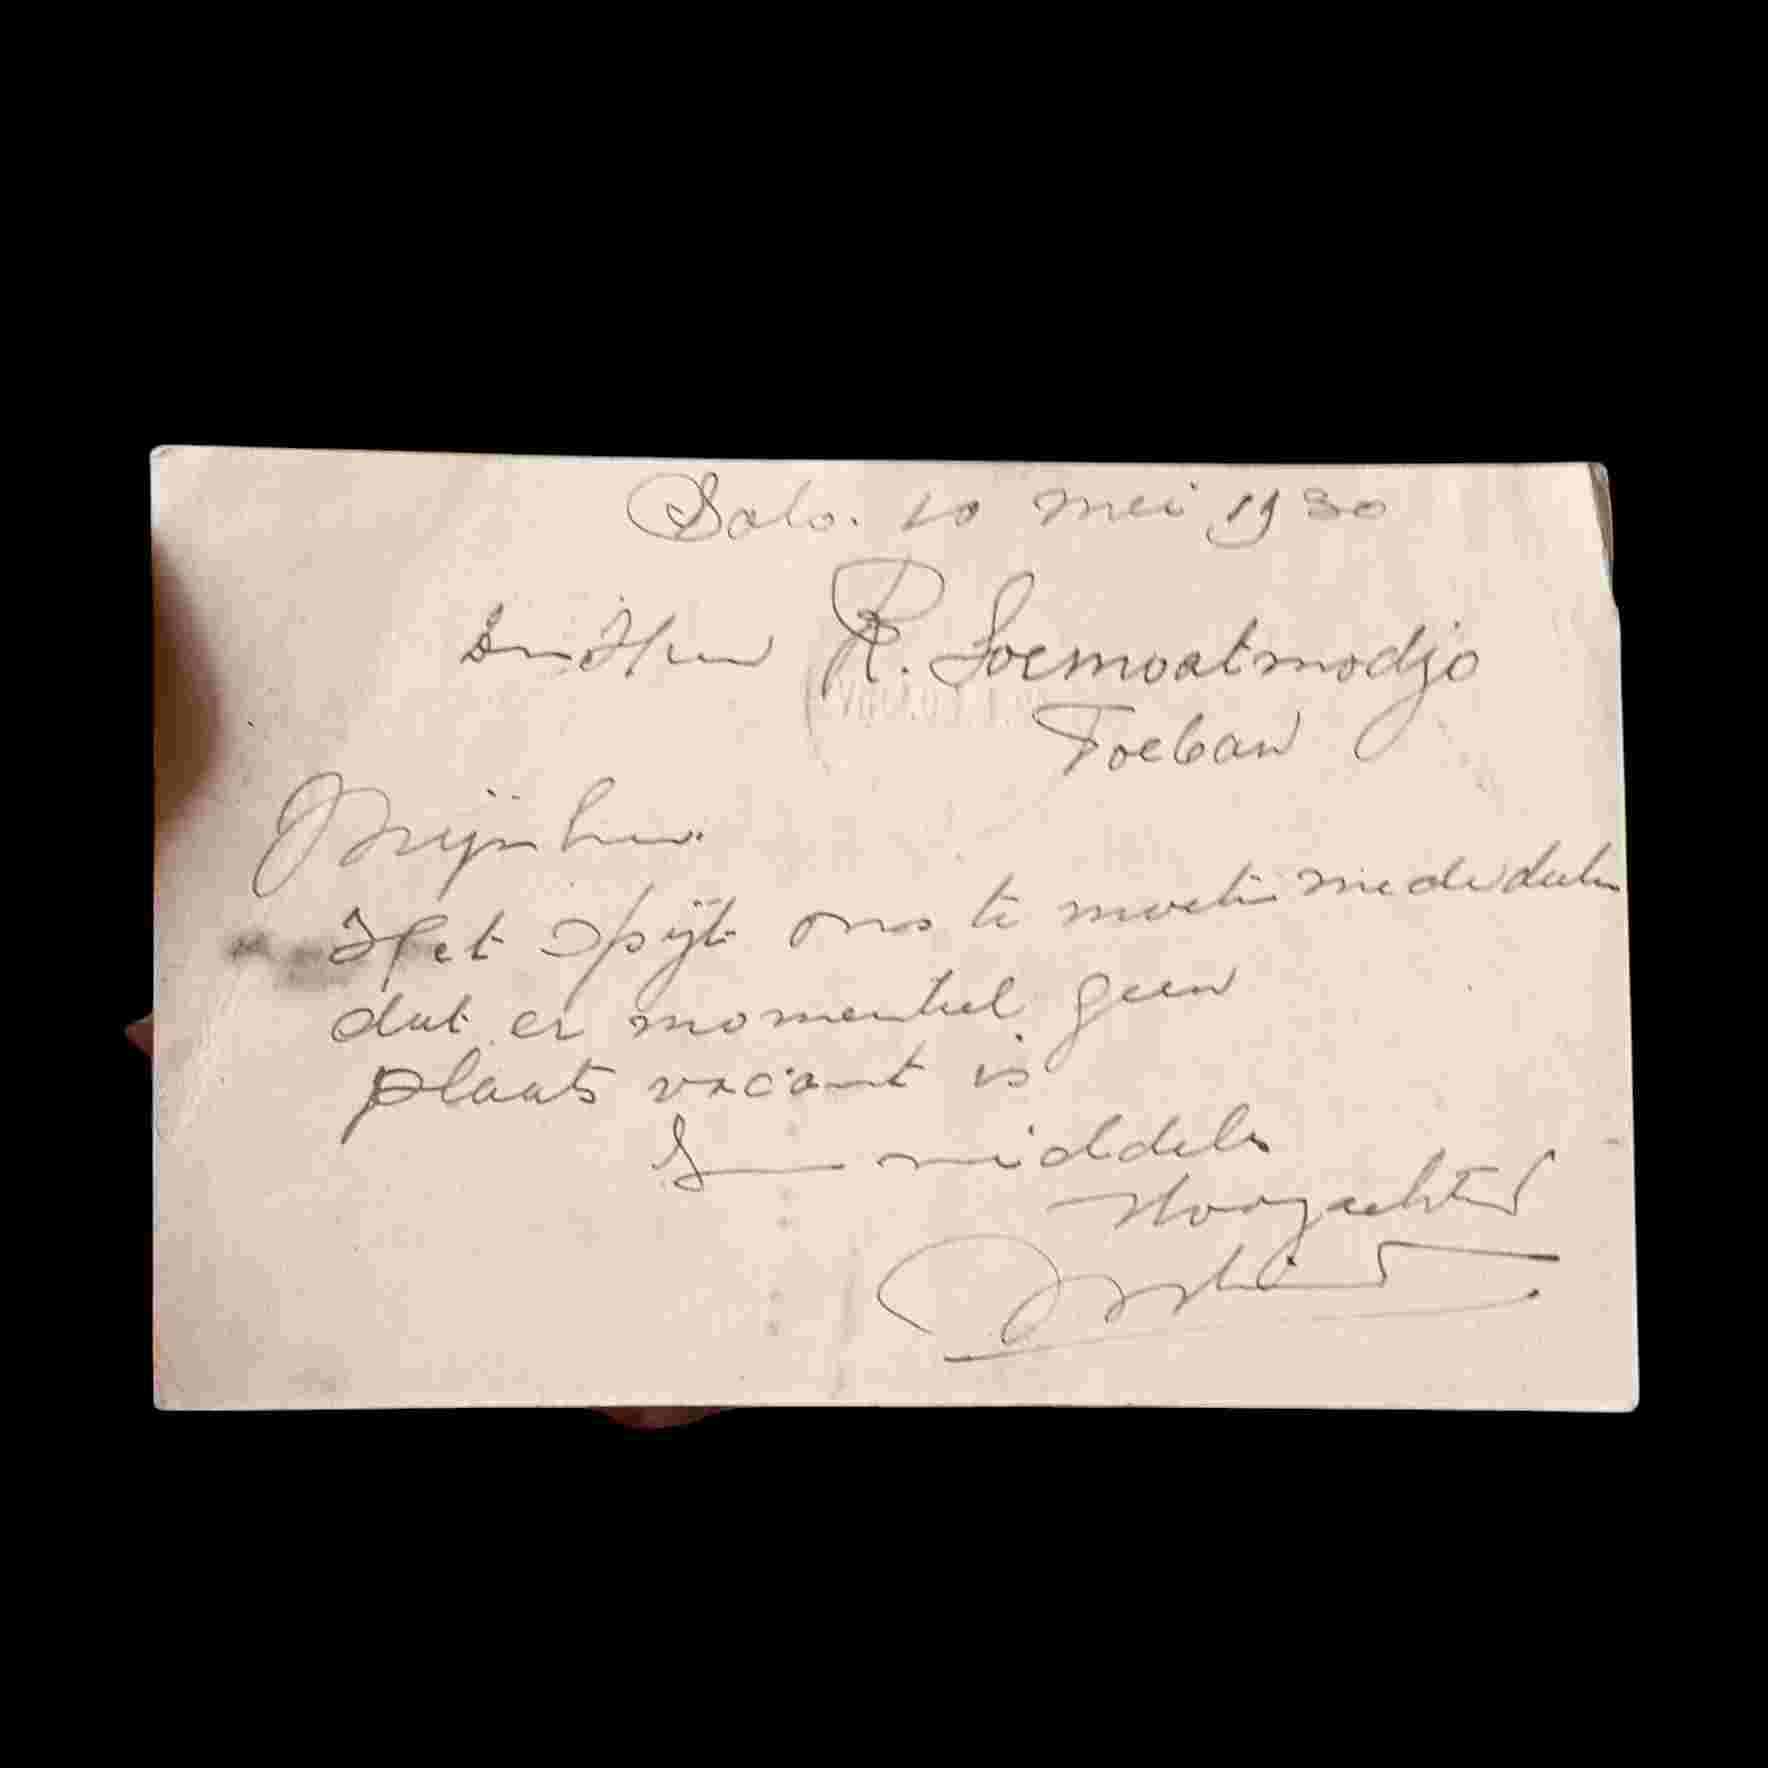 Solo. 10 mei 1930
Den Heer R. Soemoatmodjo
Toeban
Mijnheer.
Het spijt ons te moeten mededeelen
dat er momenteel geen
plaats vacant is
Inmiddels
Hoogachtend